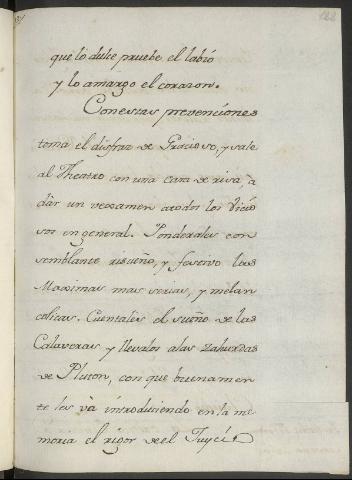 122
que lo dulce pruebe el labio
y lo amargo el corazon.
Con estas prevenciones
toma el disfraz de Gracioso, y sale
al Theatro con una cara de risa, â
dâr un vexamen atodos los Vicio
sos en general. Ponderales con
semblante risueño, y festivo las
Maximas mas serias, y melan
colicas. Cuentales el sueño de las
Calaveras y llevalos alas Zahurdas
de Pluton, con que buenamen
te les vâ introduciendo en la me
moria el rigor de el Juyçio